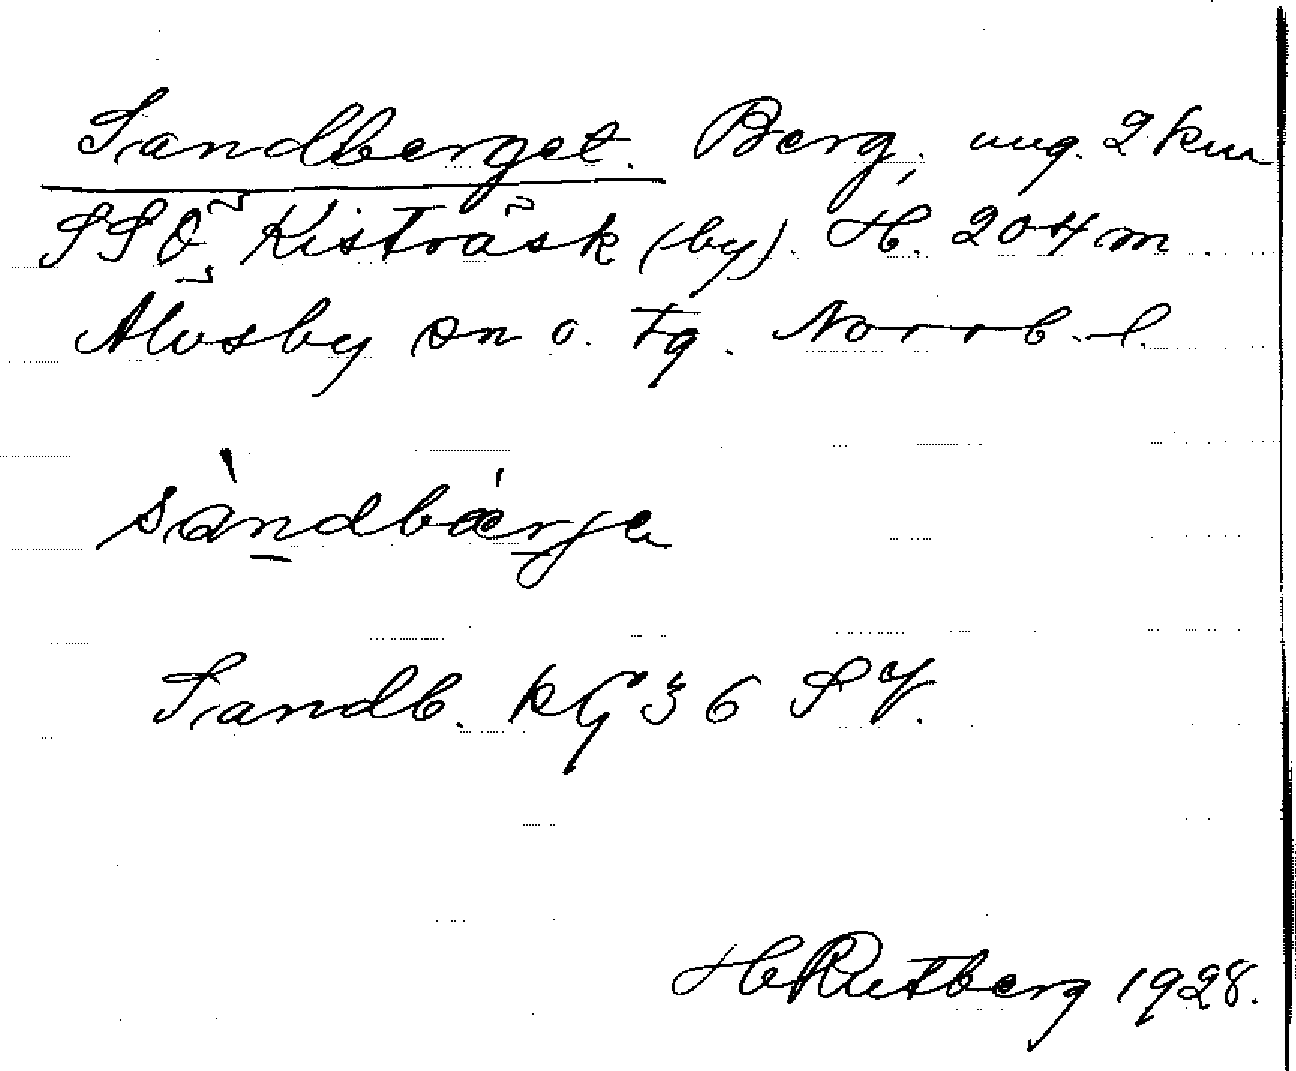 Sandberget. Berg, ung. 2 km
SSÖ Kisträsk (by). H. 204 m.
Älvsby sn o. tg. Norrb. l.
sàndbærje
Sandb. KG 36 SV.
H Rutberg 1928.